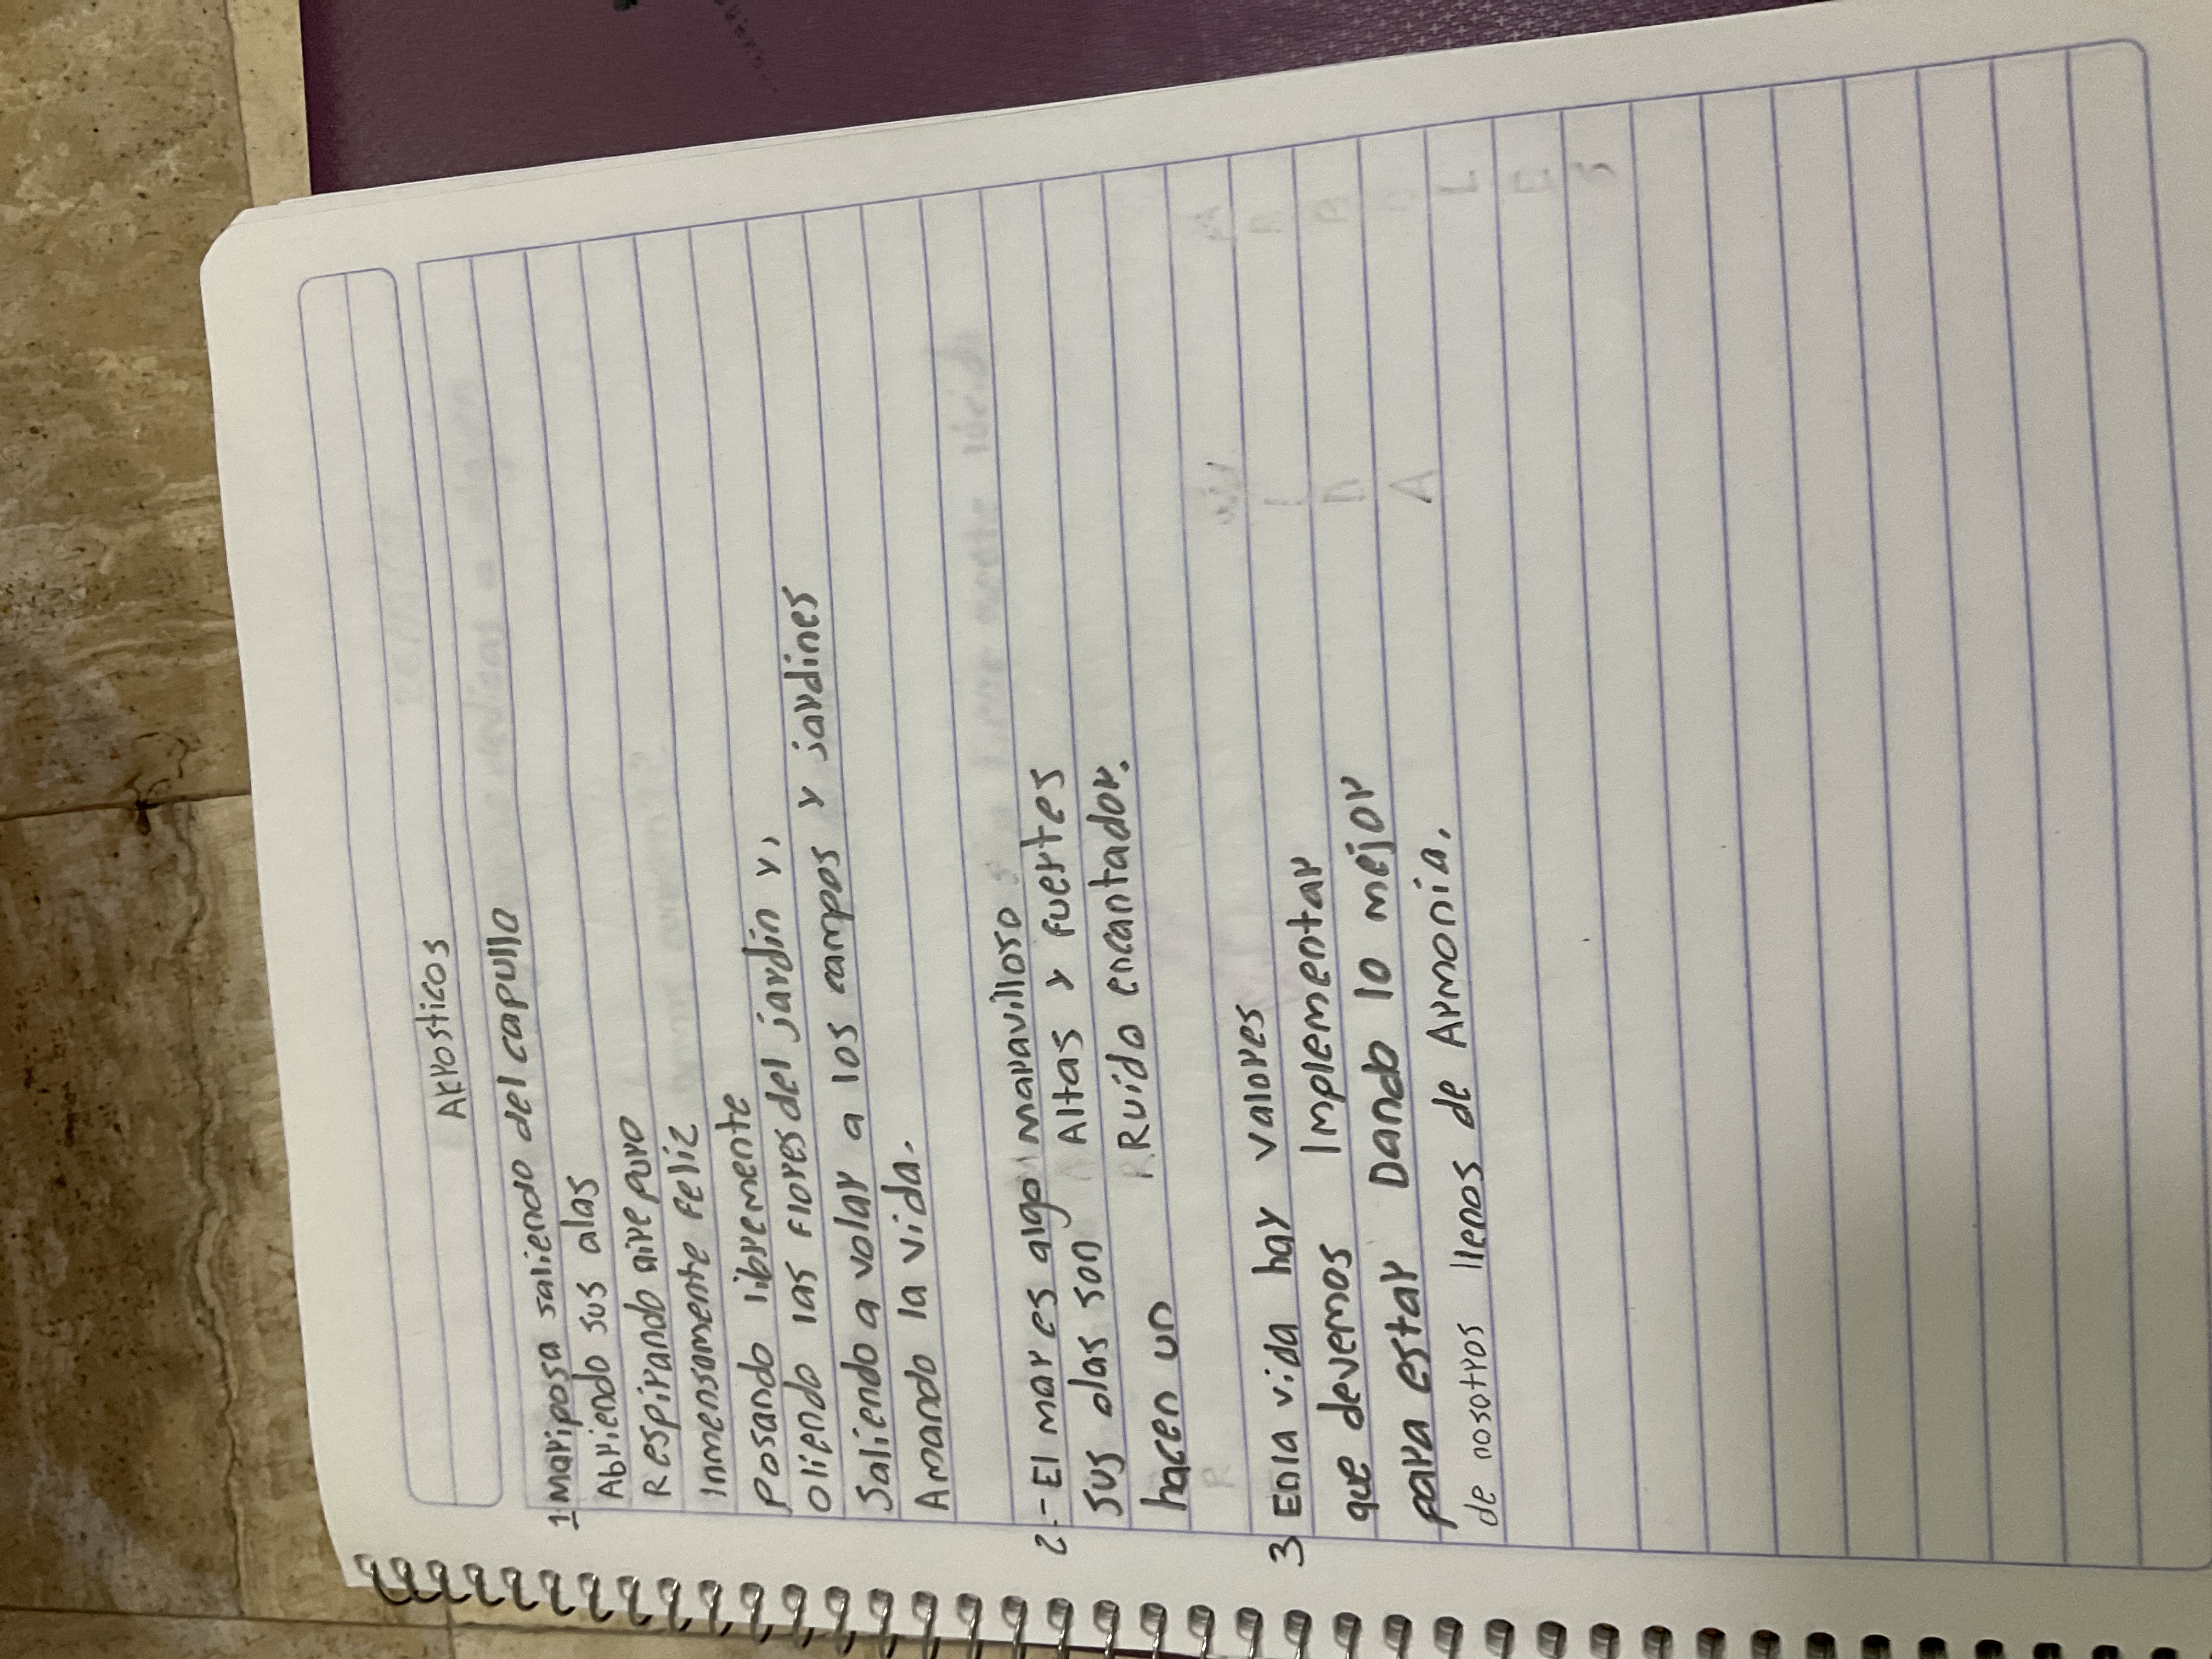 Acrosticos
1- Mariposa saliendo del capullo
Abriendo sus alas
Respirando aire puro
Inmensamente Feliz
Posando libremente
Oliendo las Flores del jardin y,
Saliendo a volar a los campos y jardines
Amando la vida.
2.- El mar es algo maravilloso
sus olas son Altas y Fuertes
hacen un Ruido encantador.
3 En la vida hay valores
que devemos Implementar
para estar Dando lo mejor
de nosotros llenos de Armonia.